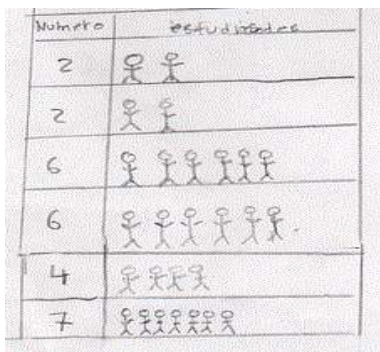 Numero estudiantes
2
2
6
6
4
7